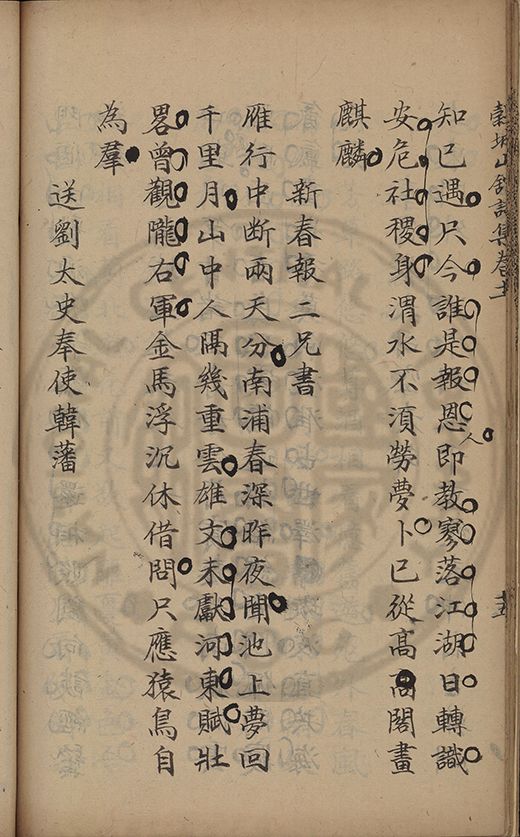 穀城山舘詩集卷十一
十五
知已遇只今誰是報恩人即教寥落江湖日轉識
安危社稷身渭水不須勞夢卜已從高閣畫
麒麟
新春報二兄書
雁行中断兩天分南浦春深昨夜聞池上夢回
千里月山中人隔幾重雲雄文未獻河東賦壯
畧曾觀隴右軍金馬浮沉休借問只應猿鳥自
為羣
送劉太史奉使韓藩